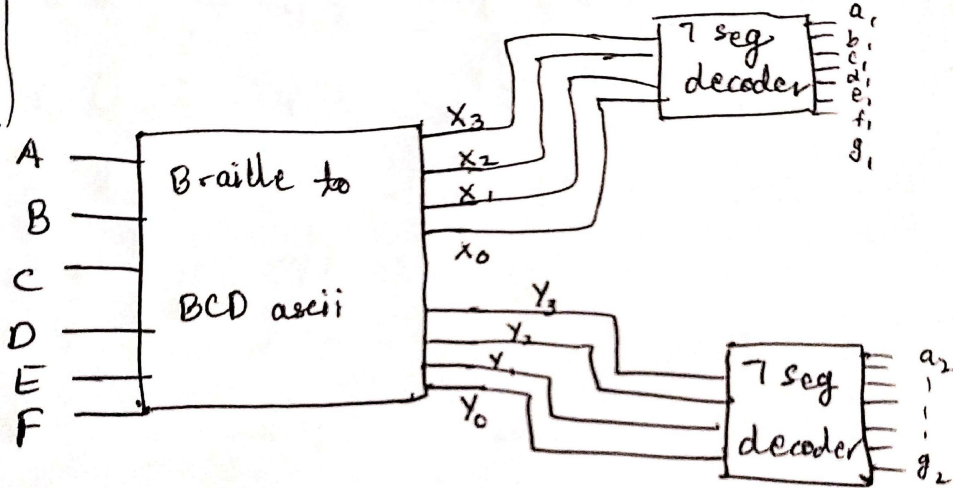 A
B
C
D
E
F
Braille to
BCD ascii
X3
X2
X1
X0
Y3
Y2
Y
Y0
7 seg
decoder
a1
b1
c1
d1
e1
f1
g1
7 seg
decoder
a2
g2